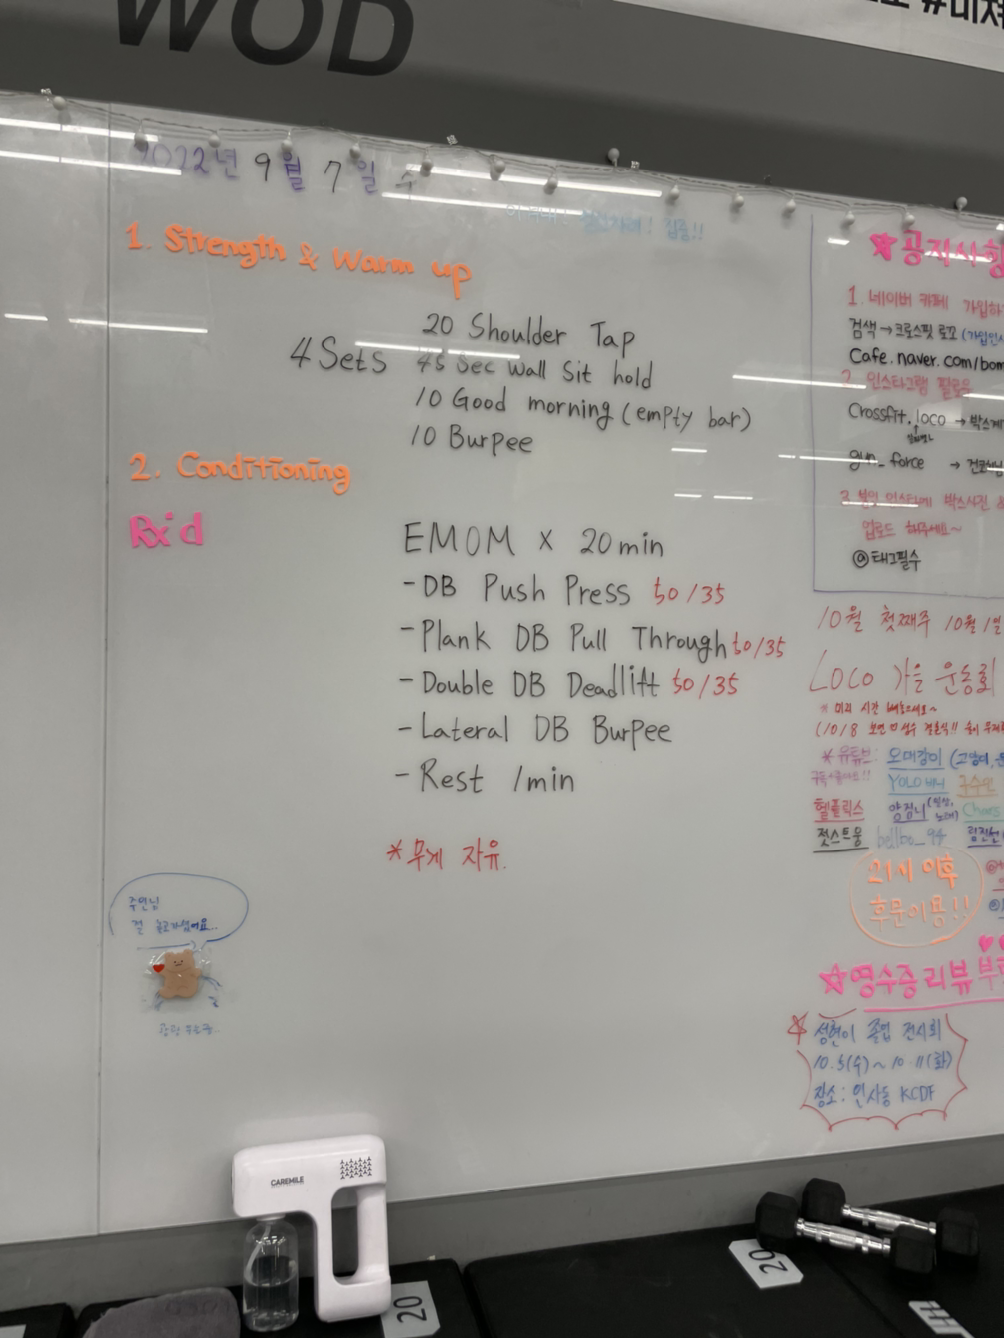 WOD
2022년 9월 7일 수
집중!!
1. Strength & Warm up
4 Sets
20 Shoulder Tap
45 Sec Wall Sit hold
10 Good morning (empty bar)
10 Burpee
2. Conditioning
Rx'd
EMOM X 20min
-DB Push Press 50/35
-Plank DB Pull Through 50/35
-Double DB Deadlift 50/35
-Lateral DB Burpee
-Rest 1min
*무게 자유.
주인님
☆공지사항
1. 네이버 카페 가입하
검색→크로스핏 로꼬 (가입인사
Cafe.naver.com/bom
2. 인스타그램 팔로우
Crossfit.loco → 박스계
gym_force →
3. 본인 인스타에 박스사진
업로드 해주세요~
@태그필수
10월 첫째주 10월 1일
LOCO 가을 운동회
*미리 시간 빼놓으세요~
(10/8
*유튜브:
YOLO
헬플릭스
벗스트웅
bellbo_94
21시 이후
후문이용!!
☆영수증리뷰
성현이 졸업 전시회
10.5(수)~10.11(화)
장소: 인사동 KCDF
CAREMILE
20
20